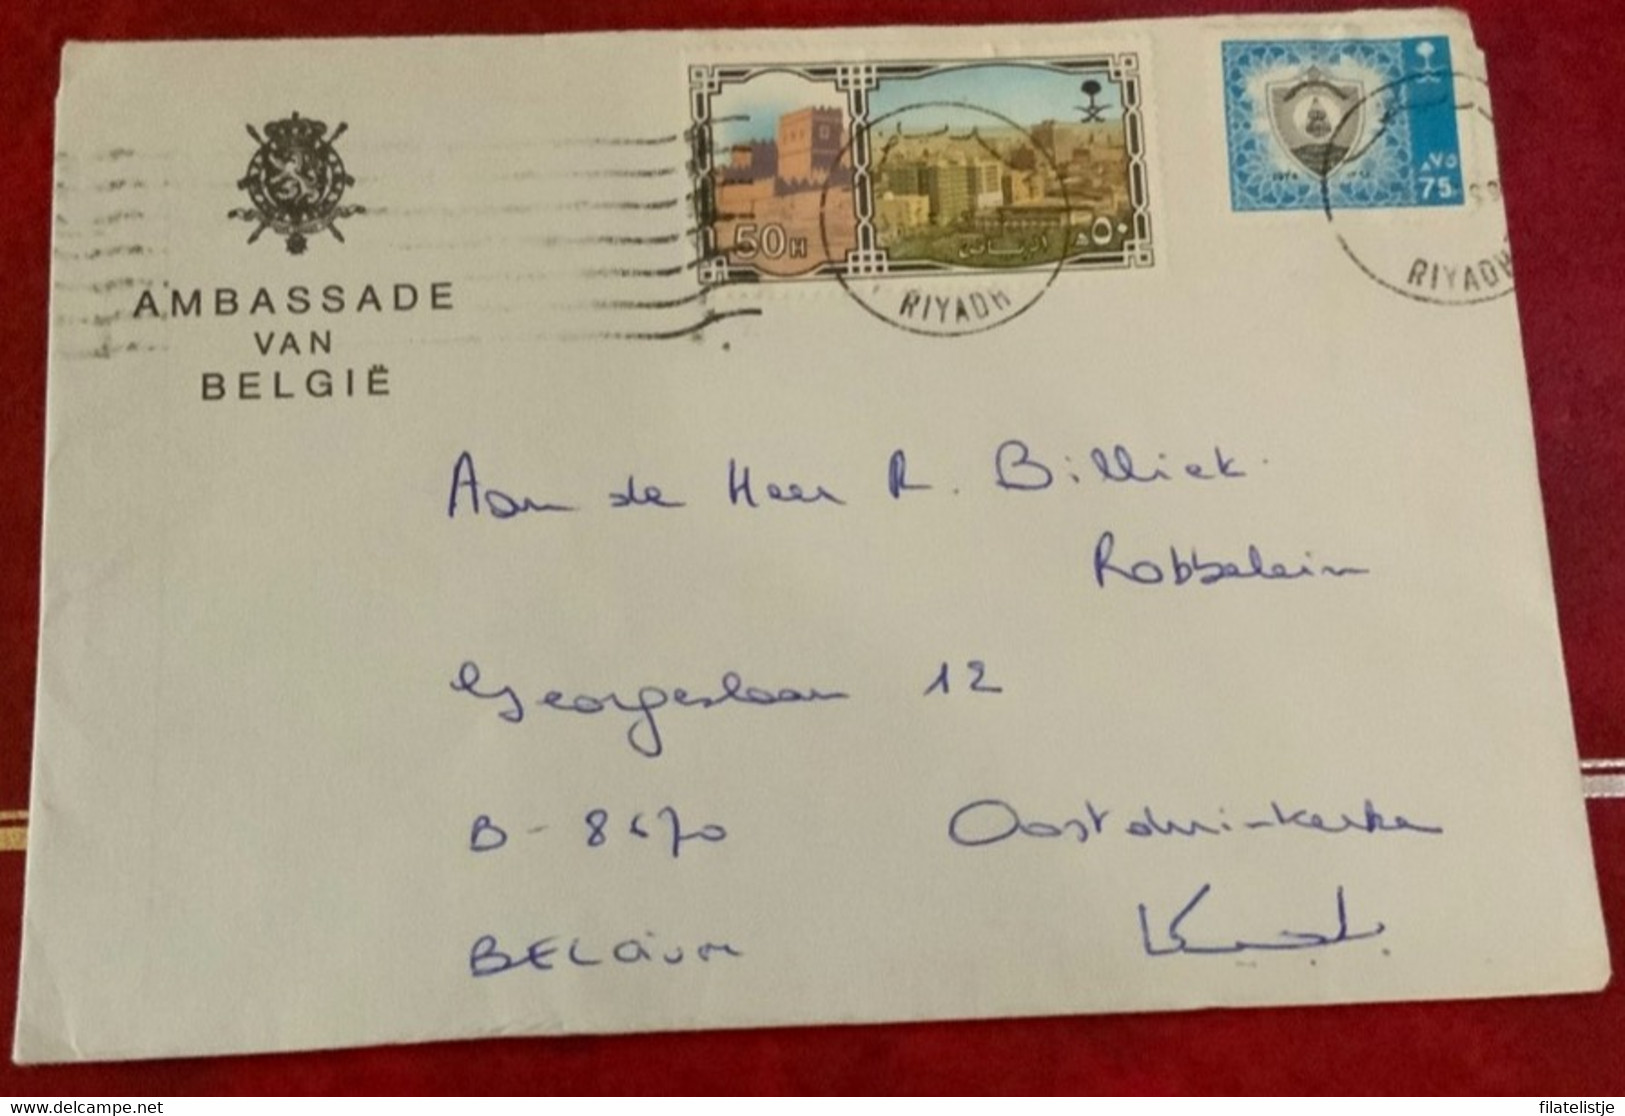 AMBASSADE
VAN
BELGIË
50H
الرياض ٥٠ هـ
RIYADH
٧٥ هـ
75
RIYADH
Aan de Heer R. Billiet
Robbelein
Georgeslaan 12
B - 8670 Oostduinkerke
BELGIUM
delcampe.net
filatelistje